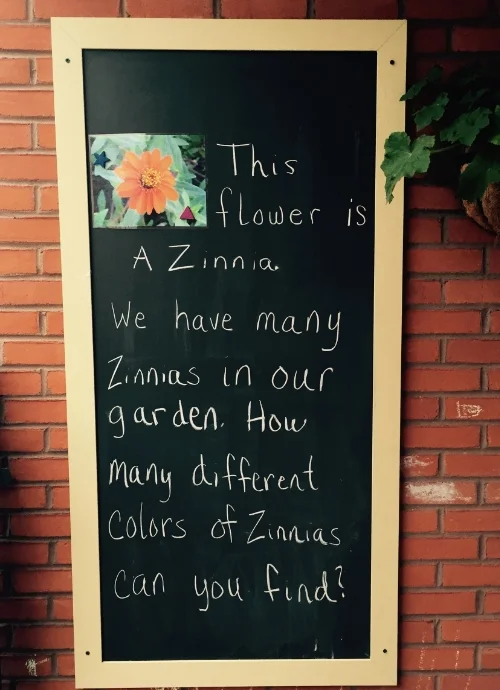 This
flower is
A Zinnia.
We have many
Zinnias in our
garden. How
many different
colors of Zinnias
can you find?